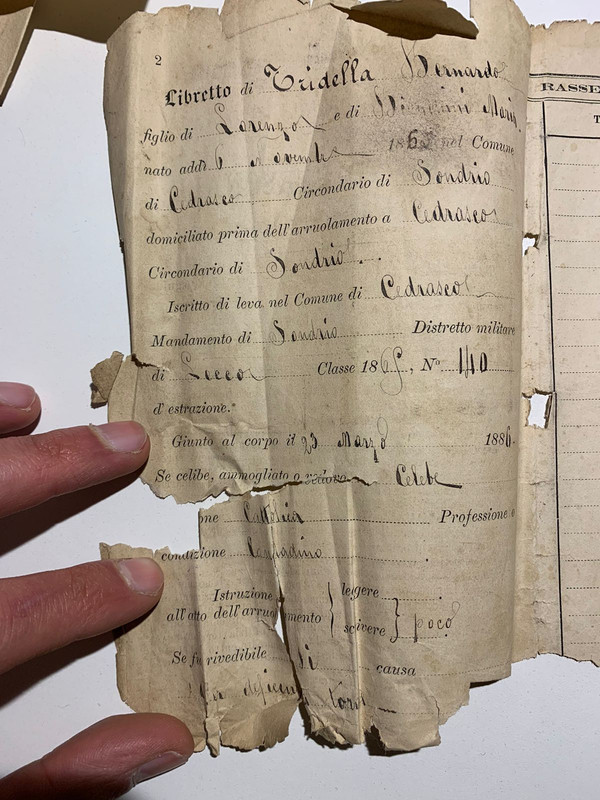 2
Libretto di Tridella Bernardo
figlio di Lorenzo e di Maria
nato addì 6 novembre 186 nel Comune
di Cedrasco Circondario di Sondrio
domiciliato prima dell'arruolamento a Cedrasco
Circondario di Sondrio.
Iscritto di leva nel Comune di Cedrasco
Mandamento di Sondrio Distretto militare
di Lecco Classe 186 , N° 140
d'estrazione.
Giunto al corpo il 23 Marzo 1886.
Se celibe, ammogliato o vedovo Celibe
one Cattolica Professione o
condizione Contadino.
Istruzione leggere
all'atto dell'arruolamento scrivere poco
Se fu rivedibile Si causa
RASSE
T